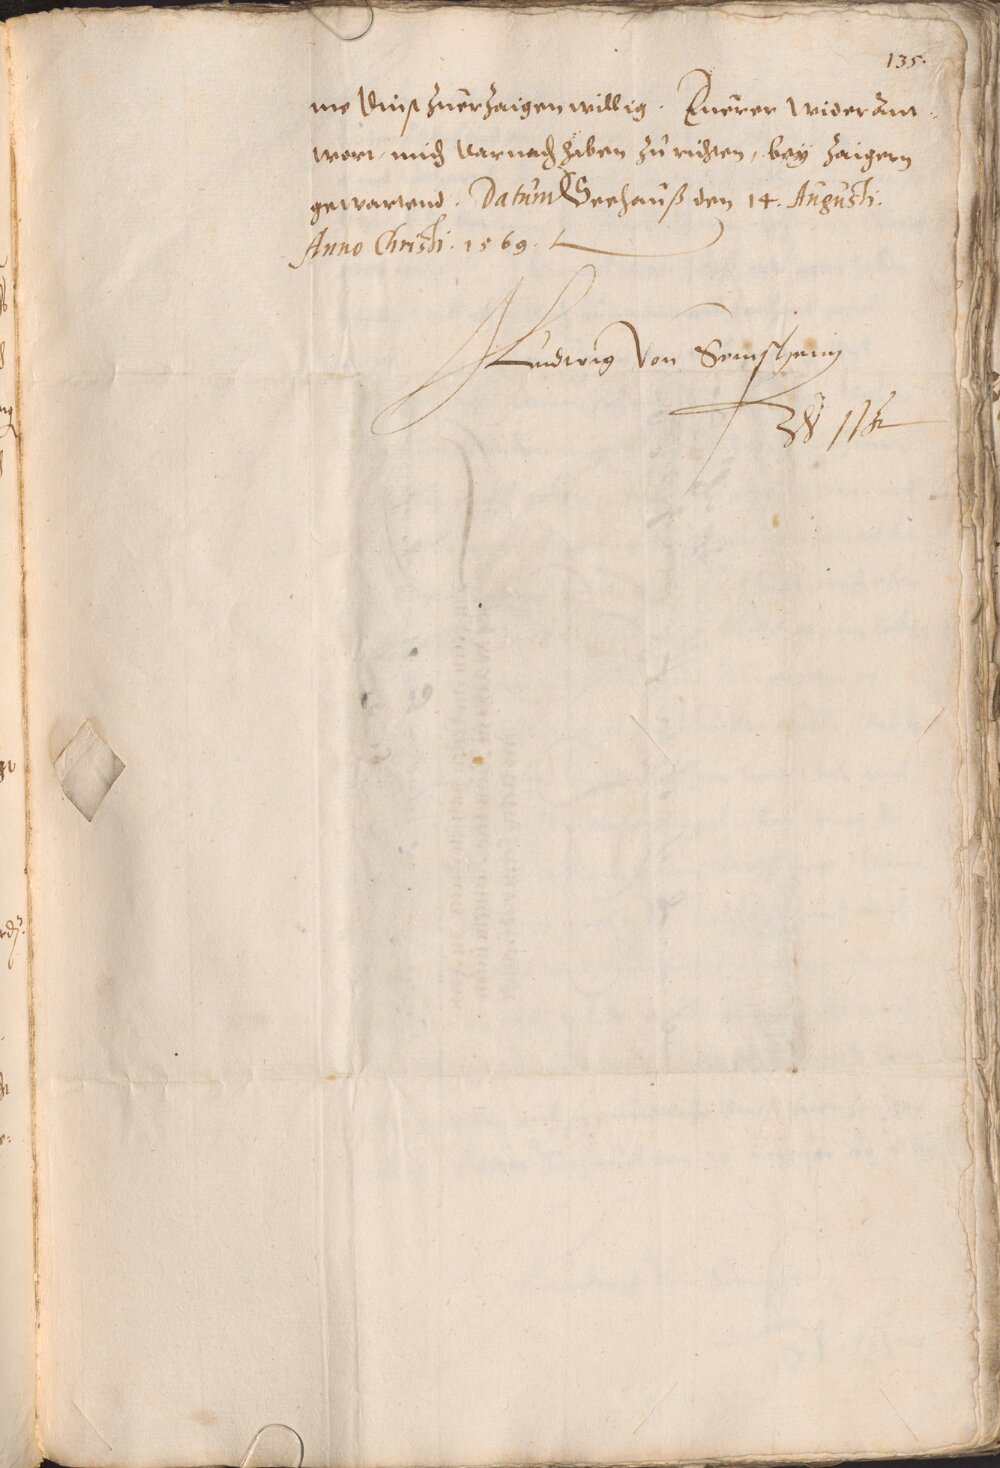 135.
me dinst zuerzaigen willig. Euerer widerant
wort, mich darnach haben zu richten, bey zaigern
gewartend. Datum Seehauß den 14. Augusti.
Anno Christi. 1569.
Ludwig von Seinsheim